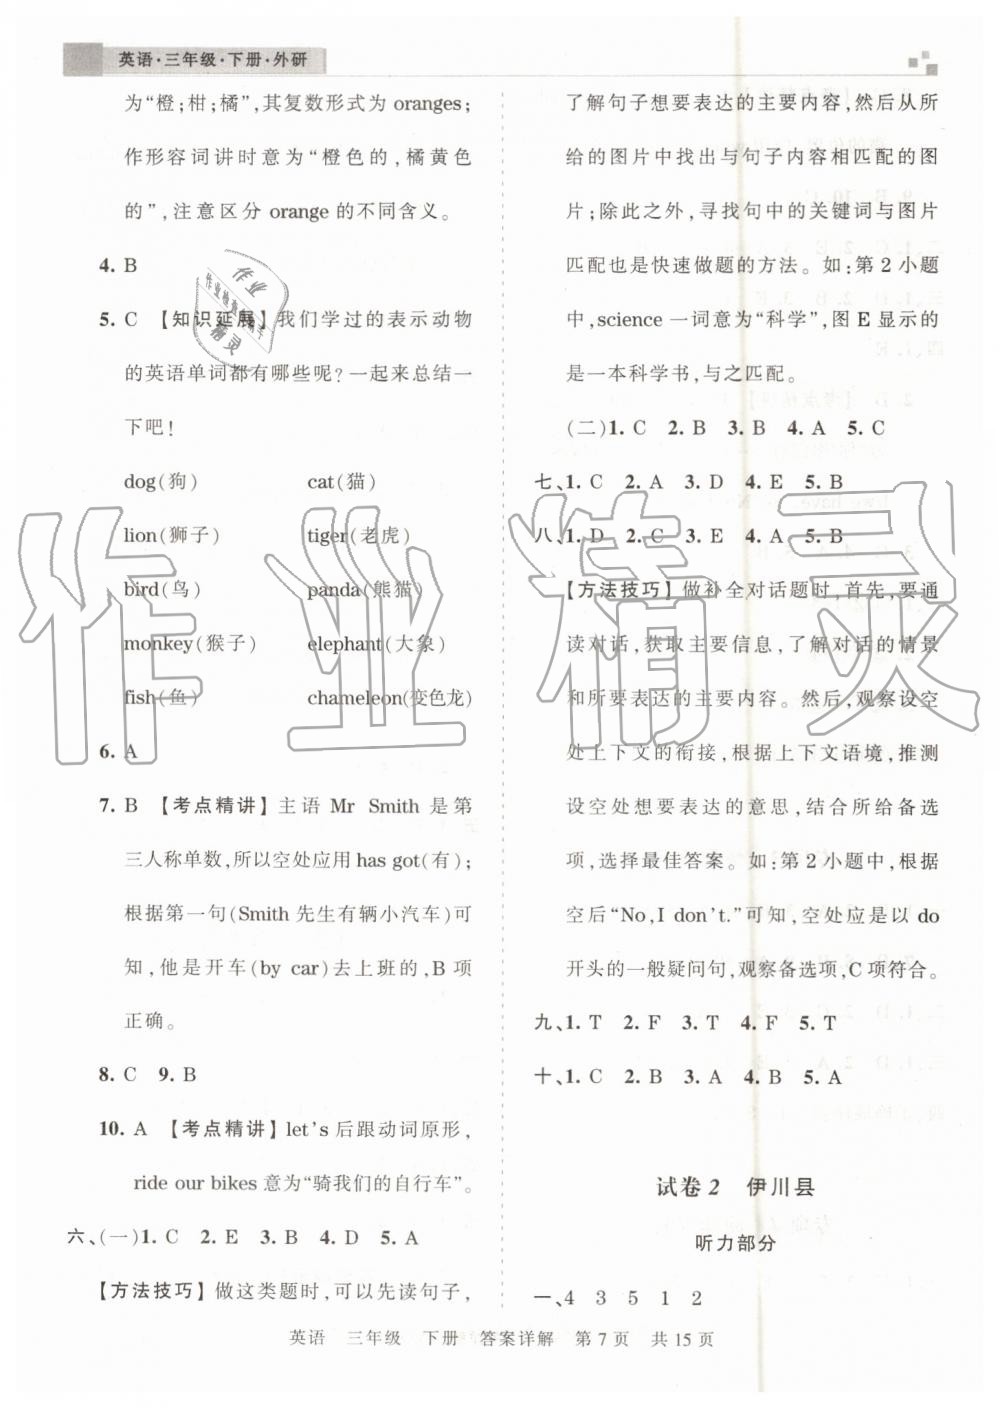 英语·三年级·下册·外研
为“橙；柑；橘”，其复数形式为 oranges；
作形容词讲时意为“橙色的，橘黄色
的”，注意区分 orange 的不同含义。
4. B
5. C 【知识延展】我们学过的表示动物
的英语单词都有哪些呢？一起来总结一
下吧！
dog(狗) cat(猫)
lion(狮子) tiger(老虎)
bird(鸟) panda(熊猫)
monkey(猴子) elephant(大象)
fish(鱼) chameleon(变色龙)
6. A
7. B 【考点精讲】主语 Mr Smith 是第
三人称单数，所以空处应用 has got(有)；
根据第一句(Smith 先生有辆小汽车)可
知，他是开车(by car)去上班的，B 项
正确。
8. C 9. B
10. A 【考点精讲】let's 后跟动词原形，
ride our bikes 意为“骑我们的自行车”。
六、(一)1. C 2. E 3. B 4. D 5. A
【方法技巧】做这类题时，可以先读句子，
了解句子想要表达的主要内容，然后从所
给的图片中找出与句子内容相匹配的图
片；除此之外，寻找句中的关键词与图片
匹配也是快速做题的方法。如：第 2 小题
中，science 一词意为“科学”，图 E 显示的
是一本科学书，与之匹配。
(二)1. C 2. B 3. B 4. A 5. C
七、1. C 2. A 3. D 4. E 5. B
八、1. D 2. C 3. E 4. A 5. B
【方法技巧】做补全对话题时，首先，要通
读对话，获取主要信息，了解对话的情景
和所要表达的主要内容。然后，观察设空
处上下文的衔接，根据上下文语境，推测
设空处想要表达的意思，结合所给备选
项，选择最佳答案。如：第 2 小题中，根据
空后“No, I don't.”可知，空处应是以 do
开头的一般疑问句，观察备选项，C 项符合。
九、1. T 2. F 3. T 4. F 5. T
十、1. C 2. B 3. A 4. B 5. A
试卷 2 伊川县
听力部分
一、4 3 5 1 2
英语 三年级 下册 答案详解 第 7 页 共 15 页
作业精灵